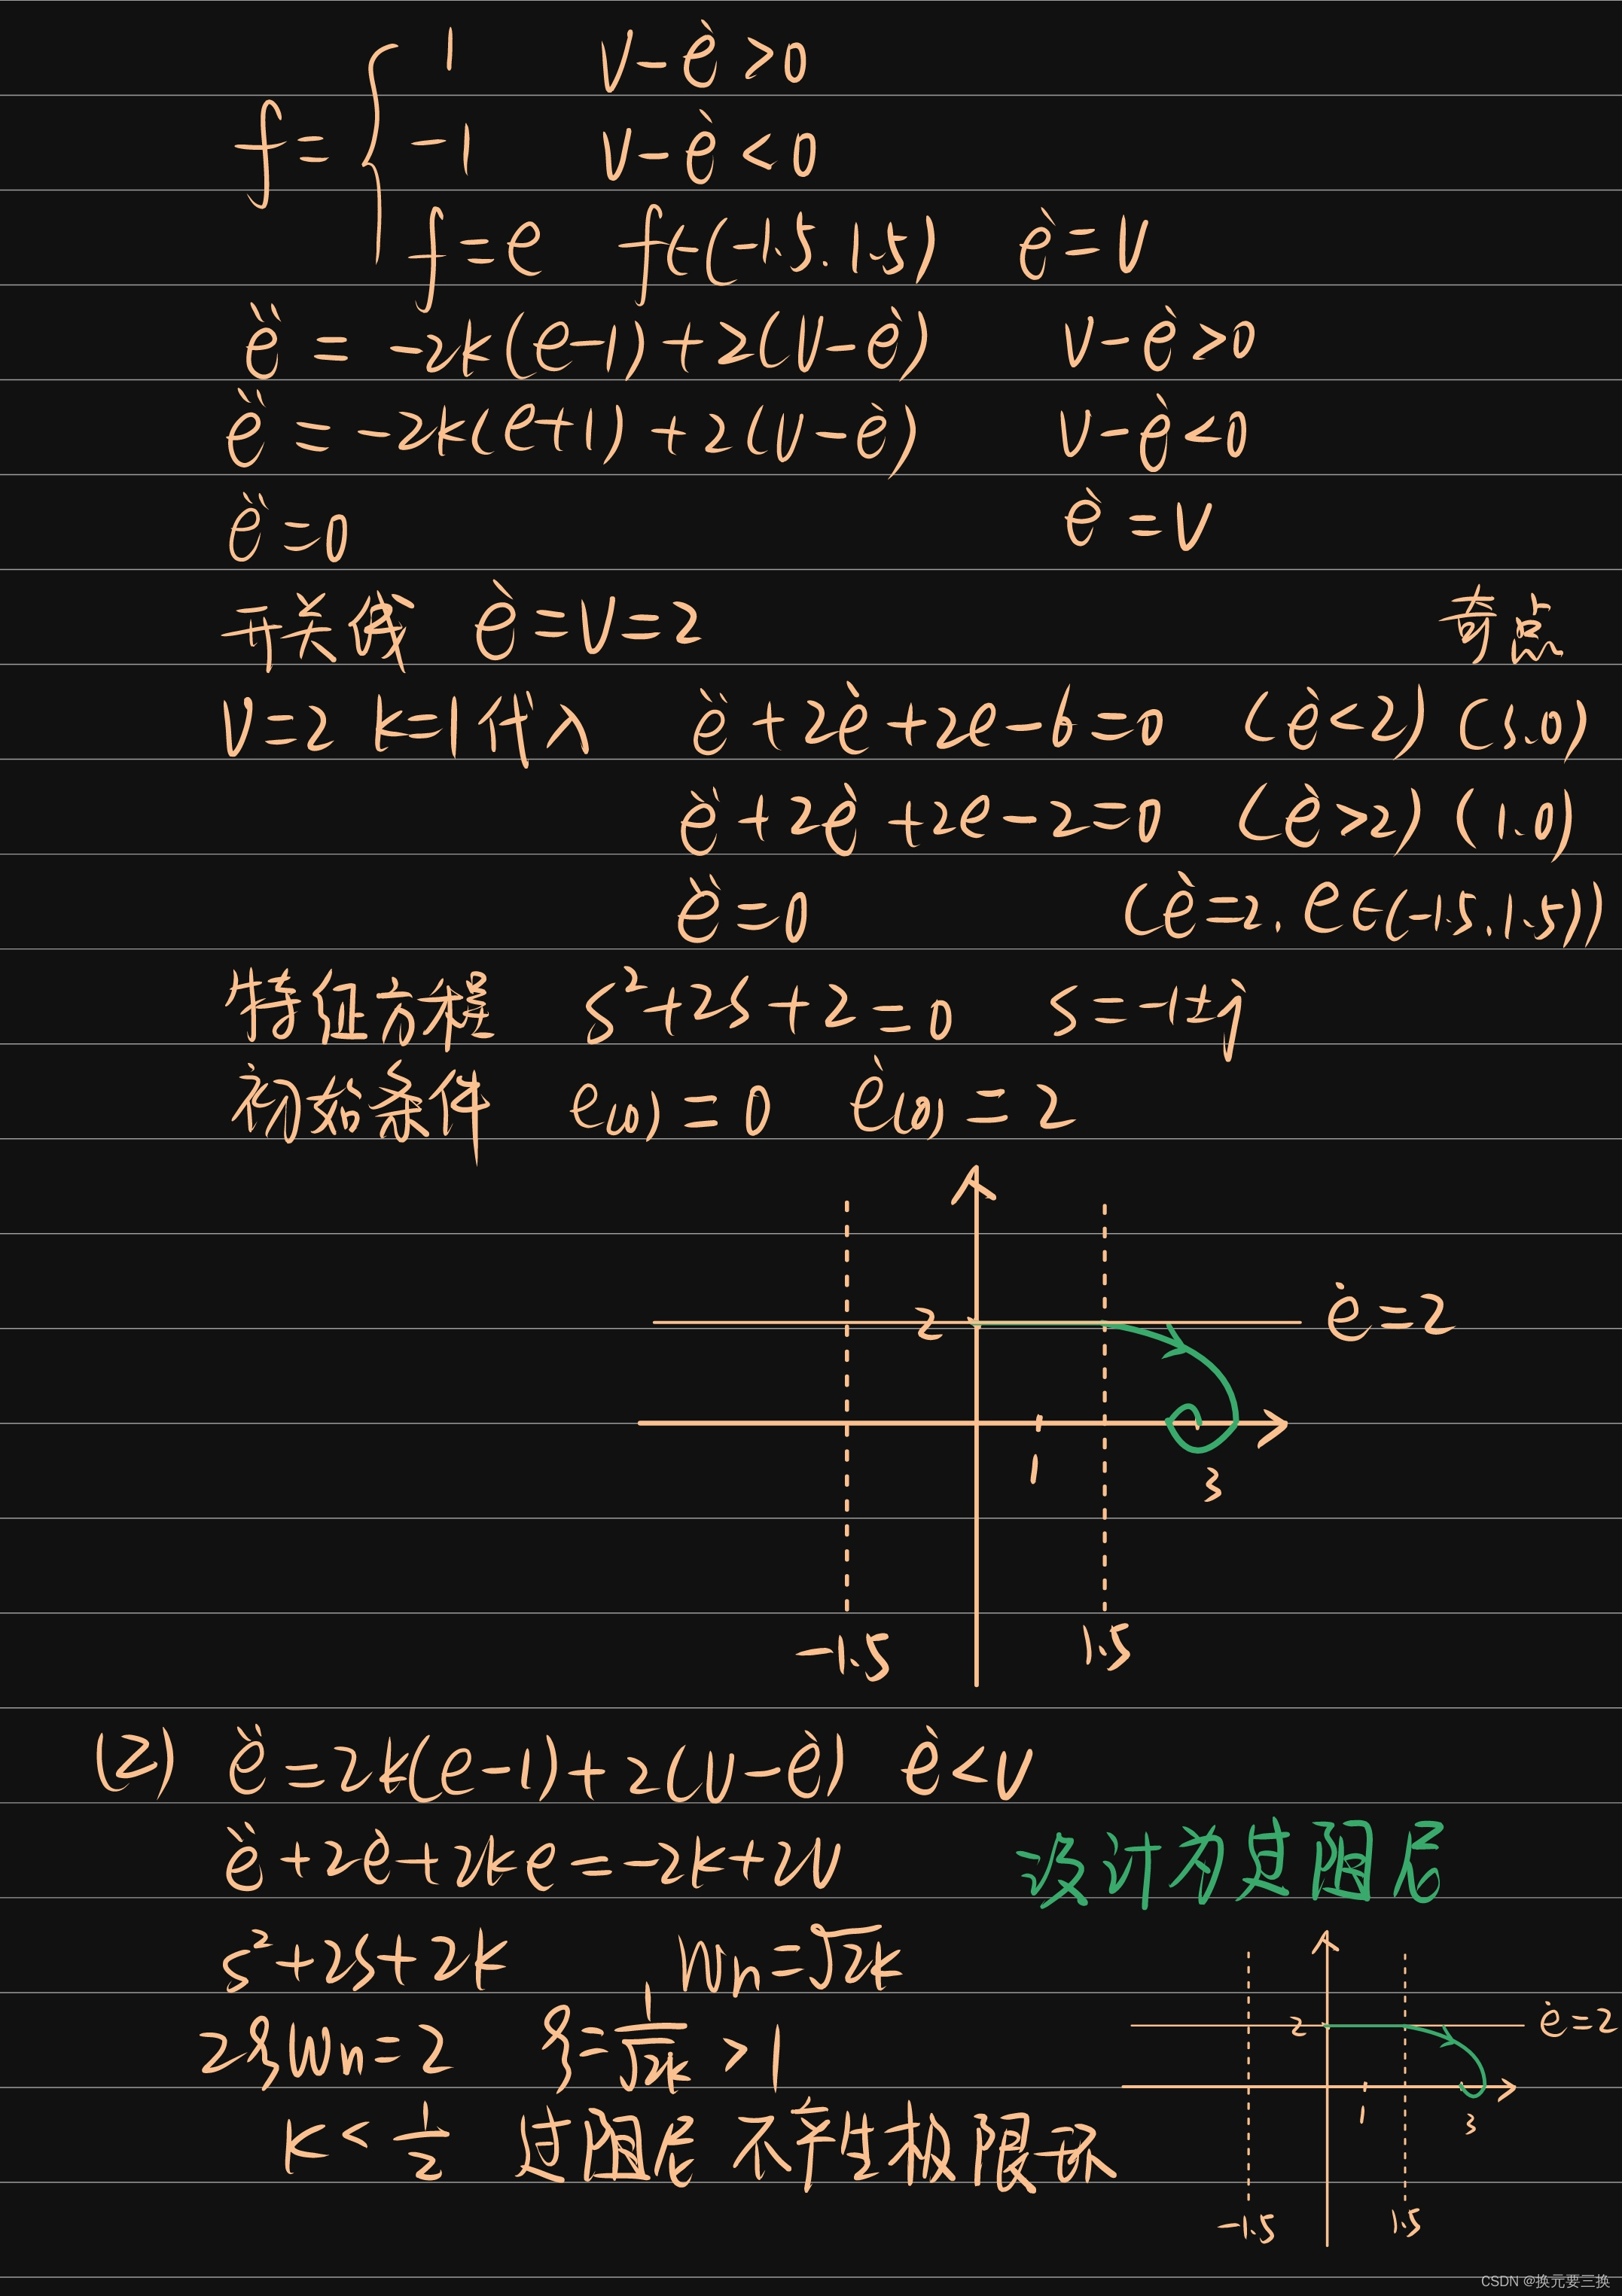 1 V-ė>0
f={ -1 V-ė<0
f=e f∈(-1.5.1.5) ė=V
ë = -2k(e-1)+2(V-ė) V-ė>0
ë = -2k(e+1)+2(V-ė) V-ė<0
ë=0 ė=V
开关线 ė=V=2 奇点
V=2 k=1代入 ë+2ė+2e-6=0 (ė<2) (3.0)
ë+2ė+2e-2=0 (ė>2) (1.0)
ë=0 (ė=2. e∈(-1.5.1.5))
特征方程 s²+2s+2=0 s=-1±j
初始条件 e(0)=0 ė(0)=2
2 ė=2
1 3
-1.5 1.5
(2) ë=2k(e-1)+2(V-ė) ė<V
ë+2ė+2ke=-2k+2V 设计为过阻尼
s²+2s+2k Wn=√2k
2 ė=2
2ξWn=2 ξ=1/√2k >1
1 3
k<1/2 过阻尼 不产生极限环
-1.5 1.5
CSDN @换元要三换